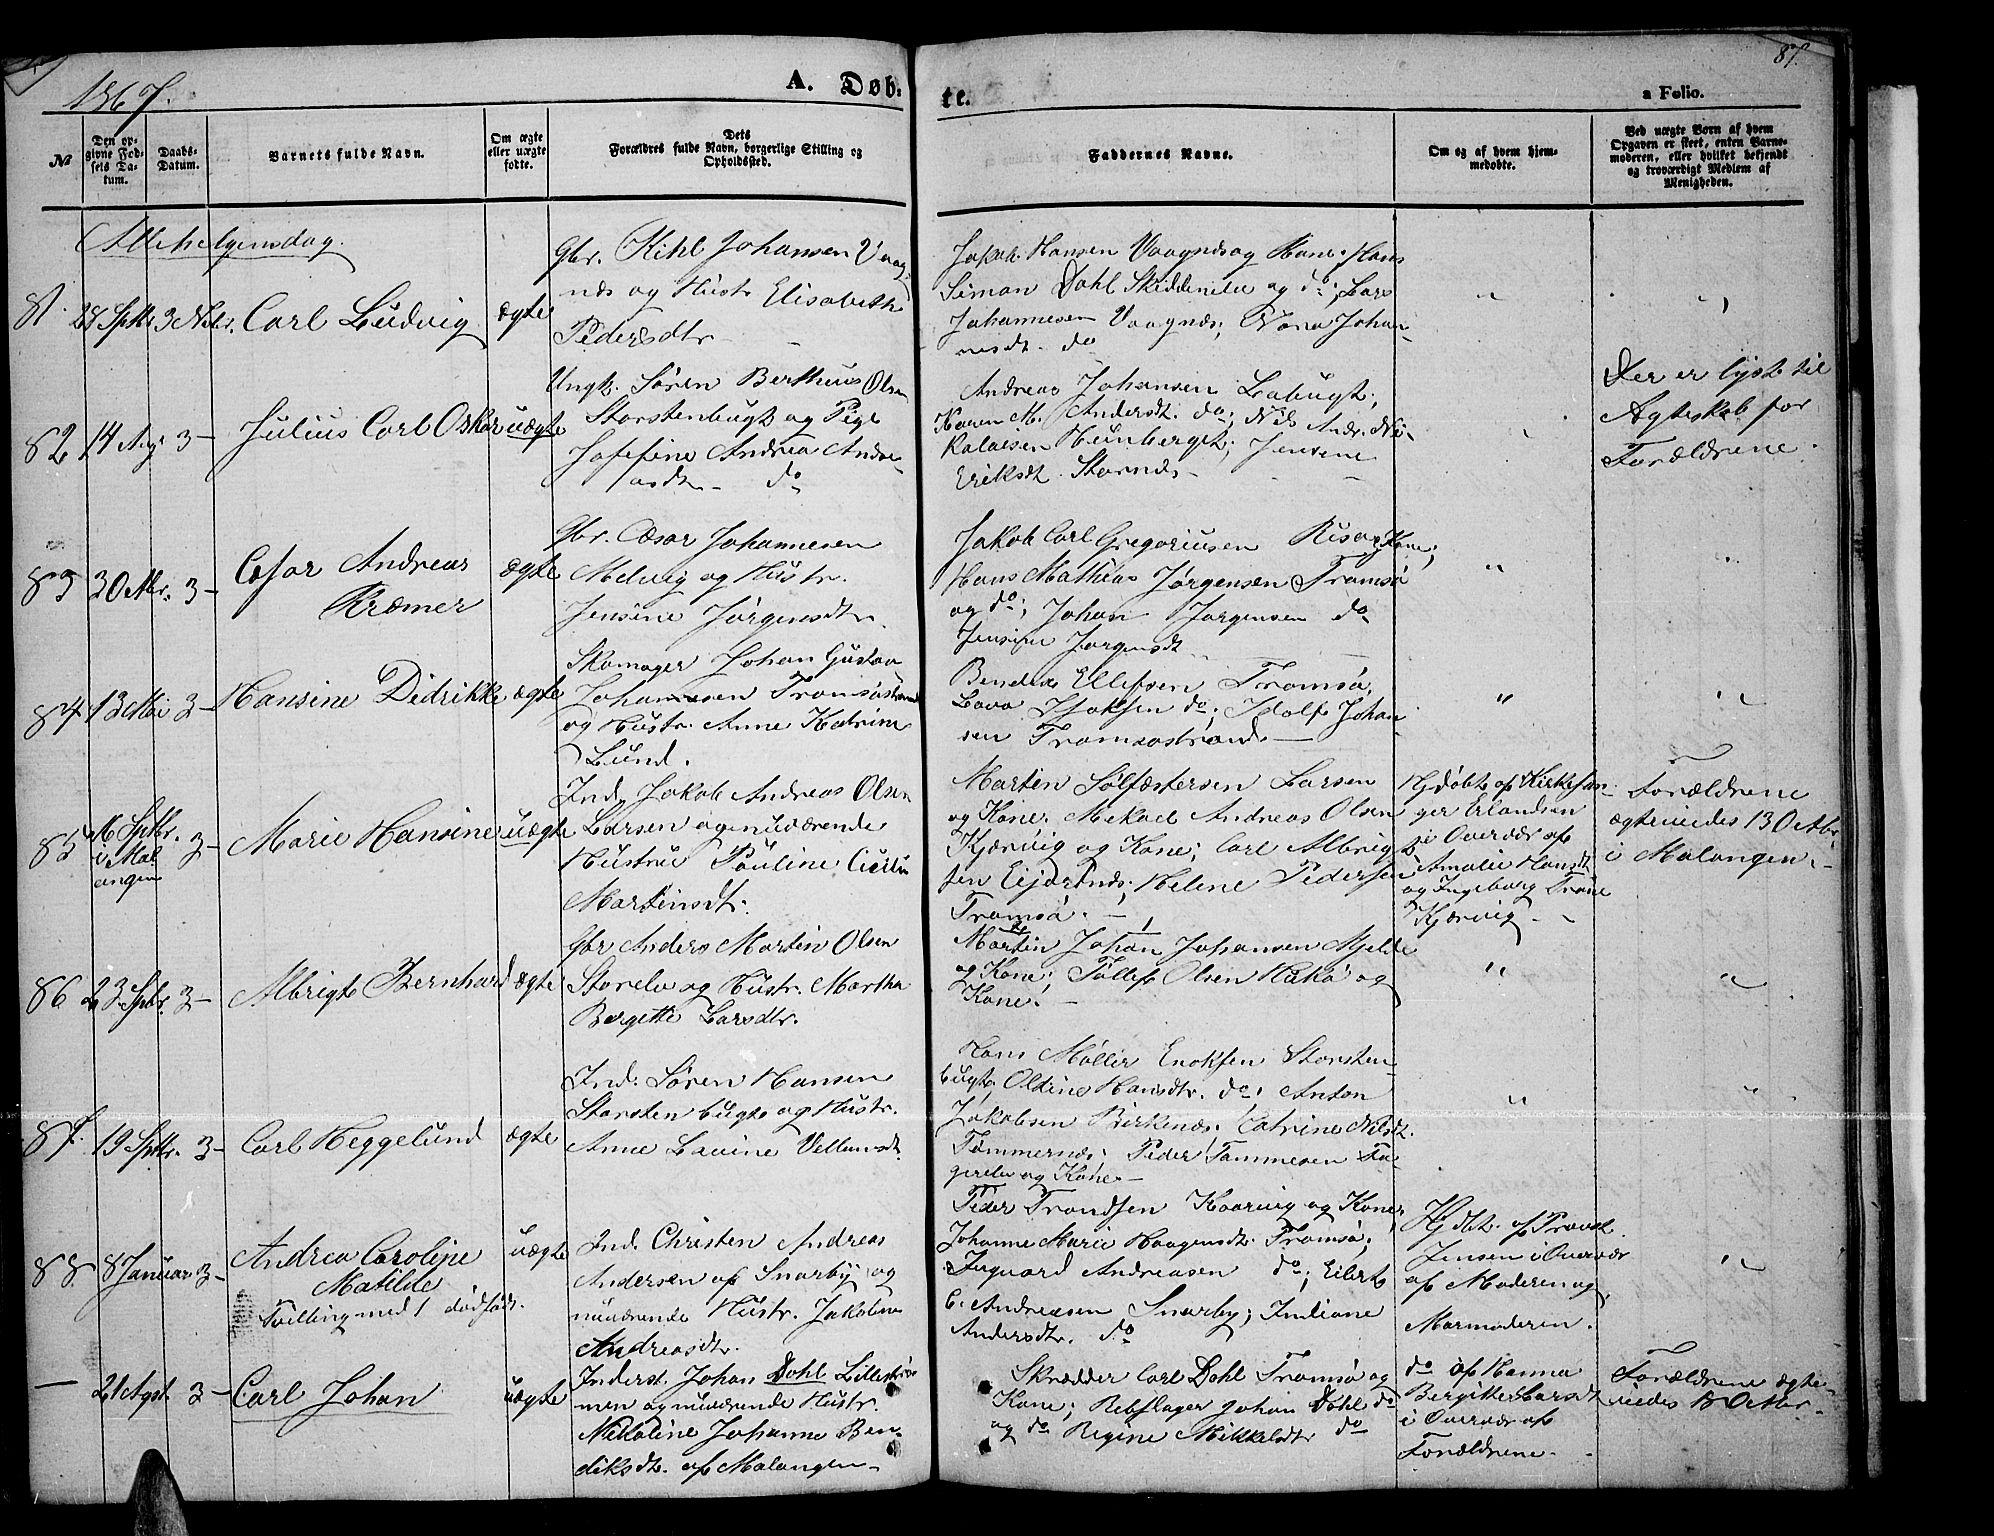 1867.
A. Døb-
te.
87.
a Folio.
№
Den op-
givne Fød-
sels Da-
tum.
Daabs-
Datum.
Barnets fulde Navn.
Om ægte
eller uægte
fødte.
Dets
Forældres fulde Navn, borgerlige Stilling og
Opholdssted.
Faddernes Navne.
Om og af hvem hjem-
medøbte.
Ved uægte Børn af hvem
Opgaven er skeet, enten Barne-
moderen, eller hvilket bekjendt
og troværdigt Medlem af
Menigheden.
Allehelgensdag.
81.
3 Nbr.
Carl Ludvig
ægte
Gbr. Kihl Johansen Vaag-
næs og Hustr Elisabeth
Pedersdtr
Jakob Hansen Vaagnæs og Kone; Hans
Simon Dahl Skiddenelv og do; Lars
Johannesen Vaagnæs;
nesdt. do
"
"
82
14 Aug
3 –
Julius Carl Oskar
uægte
Ungk. Søren Bertheus Olsen
Storstenbugt og Pige
Josefine Andrea Andre-
asdt. do
Andreas Johansen Labugt;
Karen M. Andersdt. do; Nils Andr. Ni-
kolaisen; Jensine
Eriksdt. Stornæs
"
Der er lyst til
Ægteskab for
Forældrene.
83
3 –
Cesar Andreas
Kræmer
ægte
Gbr. Cæsar Johannesen
Melvig og Hustr.
Jensine Jørgensdtr.
Jakob Carl Gregoriusen Risø og Kone;
Hans Mathias Jørgensen Tromsø
og do; Johan Jørgensen do
Jensine Jørgensdt
"
"
84
13 Mai
3 –
Hansine Didrikke
ægte
Skomager Johan Gustav
Johannesen Tromsøstrand
og Hustr. Anne Katrine
Lund.
Bendix Ellefsen Tromsø,
Lava Isaksen do; Idolf Johan-
sen Tromsøstrand
"
"
85
16 Sptbr.
i Mal
angen
3 –
Marie Hansine
uægte
Ind. Jakob Andreas Olsen
Larsen og nuværende
Hustru Pauline Cicilie
Martinsdtr.
Martin Sølfæstersen Larsen
og Kone; Mekael Andreas Olsen
Kjærvig og Kone; Carl Albrigt-
sen Eijdesnæs; Helene Pedersen
Tromsø.
Hjdøbt af Kirkesan-
ger Erlandsen
i Overvær af
Amalie Hansdt.
og Ingeborg Trane
Kjærvig.
Forældrene
ægteviedes 13 Octbr.
i Malangen.
86
23 Sptbr.
3 –
Albrigt Bernhard
ægte
Gbr Anders Martin Olsen
Storelv og Hustr. Martha
Bergette Larsdtr.
Martin Johan Johansen Mjelde
og Kone; Tollef Olsen Håkø og
Kone.
"
"
87.
19 Sptbr.
3 –
Carl Heggelund
ægte
Ind. Søren Hansen
Storstenbugt og Hustr.
Anne Lavine Vellumsdt.
Hans Møller Enoksen Storsten-
bugt, Oldine Hansdtr. do; Anton
Jakobsen Birkenæs; Catrine Nilsdt.
Tømmernæs; Peder Tammesen Fa-
gerelv og Kone
"
"
88
8 Januar
3 –
Andrea Caroline
Matilde
Tvilling med 1 dødfødt.
uægte
Ind. Christen Andreas
Andersen af Snarby og
nuværende Hustr. Jakobine
Andreasdtr.
Peder Trondsen Kaarvig og Kone;
Johanne Marie Haagensdt. Tromsø;
Inguard Andreasen do; Eilert
C. Andreasen Snarby; Indiane
Andersdtr. do
Hjdbt. af Provst
Jensen i Overvær
af Moderen og
Mormoderen.
"
—
21 Agst
3 –
Carl Johan
uægte
Inderst. Johan Dahl Lillestrøm-
men og nuværende Hustr.
Nikoline Johanne Ben-
diksdt. af Malangen
Skrædder Carl Dahl Tromsø og
Kone; Rebslager Johan Dahl do
og do Regine Mikkelsdtr do
do af Hanna
Bergitte Larsdt
i Overvær af
Forældrene
Forældrene ægte-
viedes 18 Octbr.